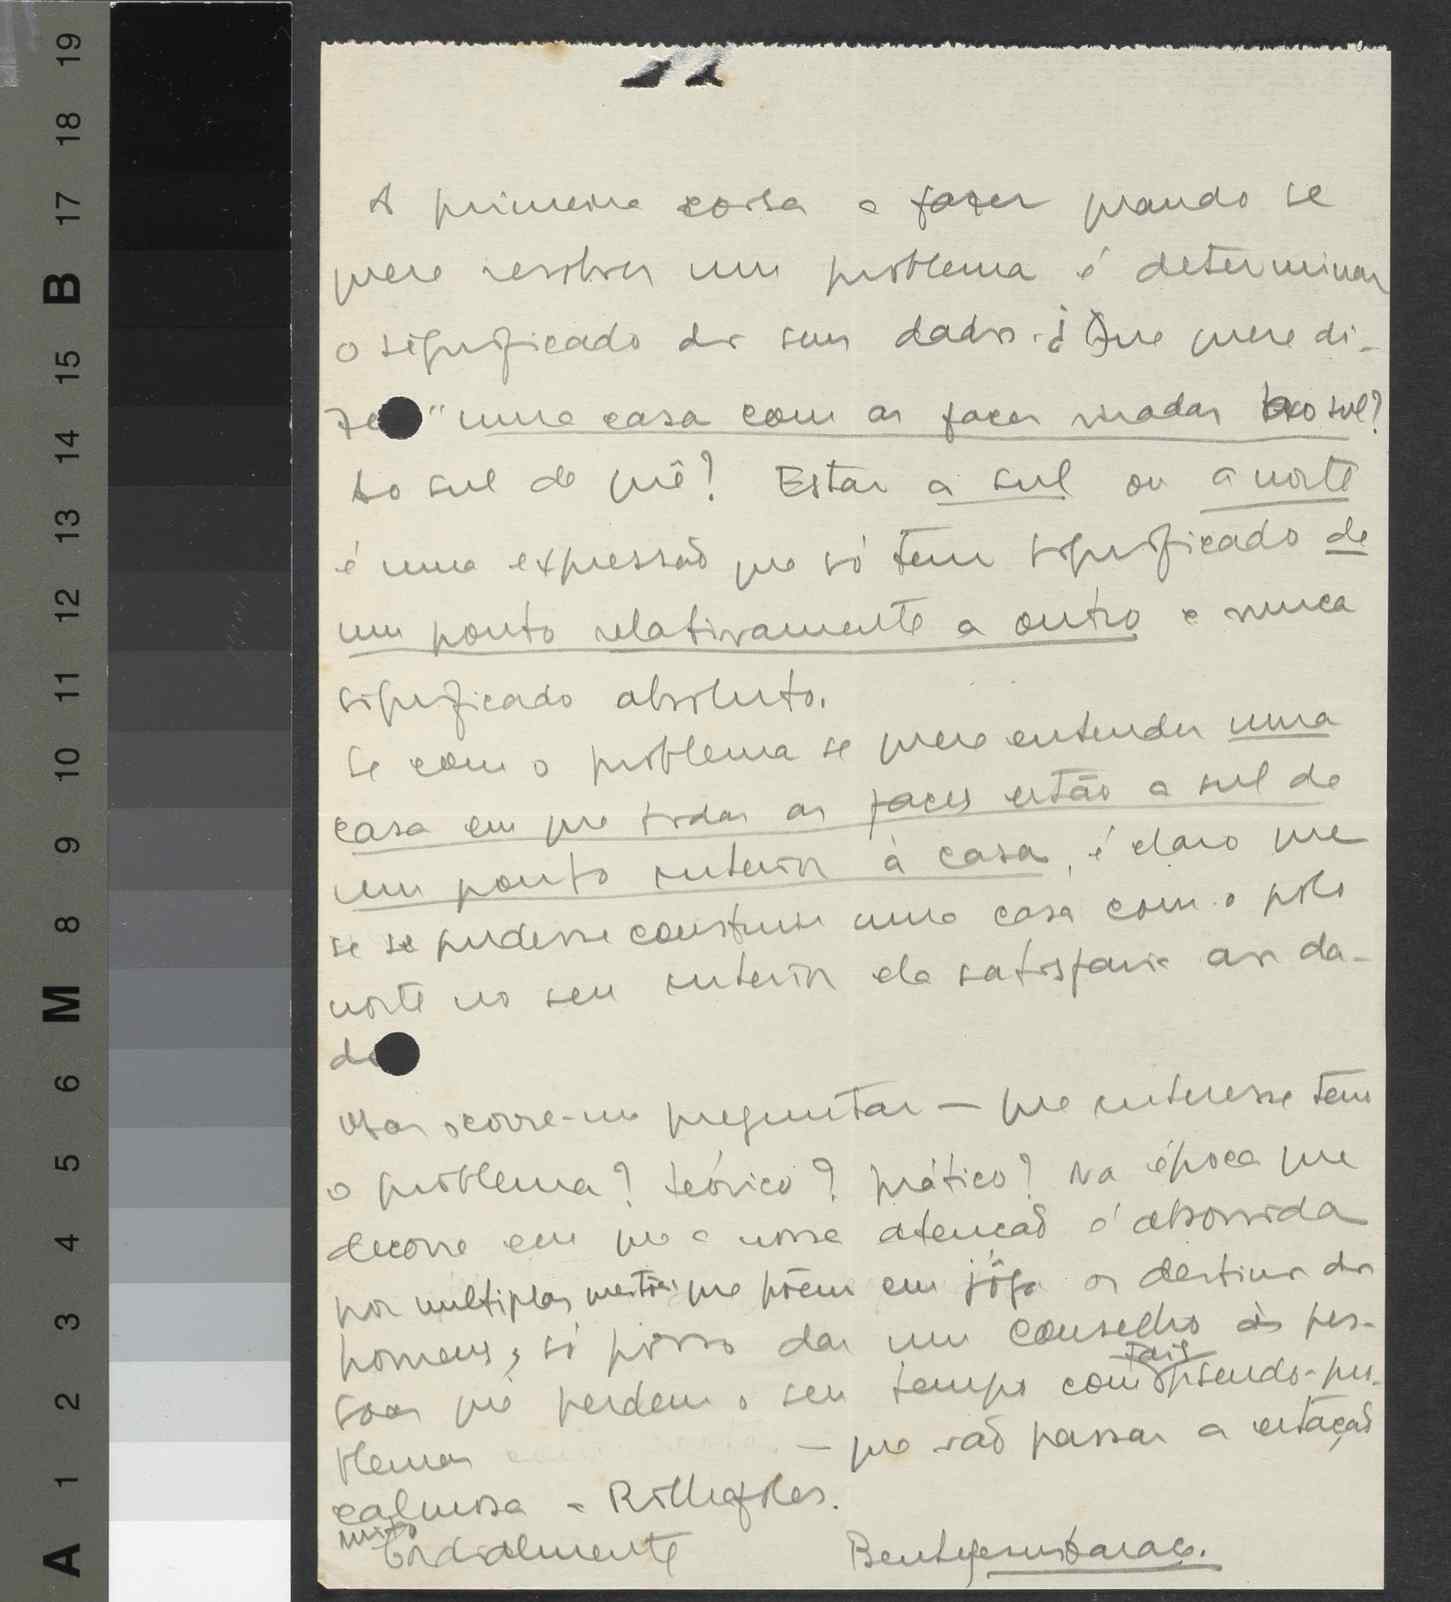 A primeira coisa a fazer quando se
quere resolver um problema é determinar
o significado dos seus dados. ¿ Que quere di-
ze "uma casa com as faces viradas ao sul?
Ao sul de quê? Estar a sul ou a norte
é uma expressão que só tem significado de
um ponto relativamente a outro e nunca
significado absoluto.
Se com o problema se quere entender uma
casa em que todas as faces estão a sul de
um ponto interior à casa, é claro que
se se pudesse construir uma casa com o polo
norte no seu interior ela satisfaria aos da-
do
Mas ocorre-me preguntar — que interesse tem
o problema? teórico? prático? Na época que
decorre em que a nossa atenção é absorvida
por multiplas questões que põem em jôgo os destinos dos
homens, só posso dar um conselho às pes-
soas que perdem o seu tempo com tais pseudo-pro-
blemas — que vão passar a estação
calmosa a Rilhafoles.
muito
Cordialmente Bento Jesus Caraça.
19
18
17
B
15
14
13
12
11
10
9
8
M
6
5
4
3
2
1
A